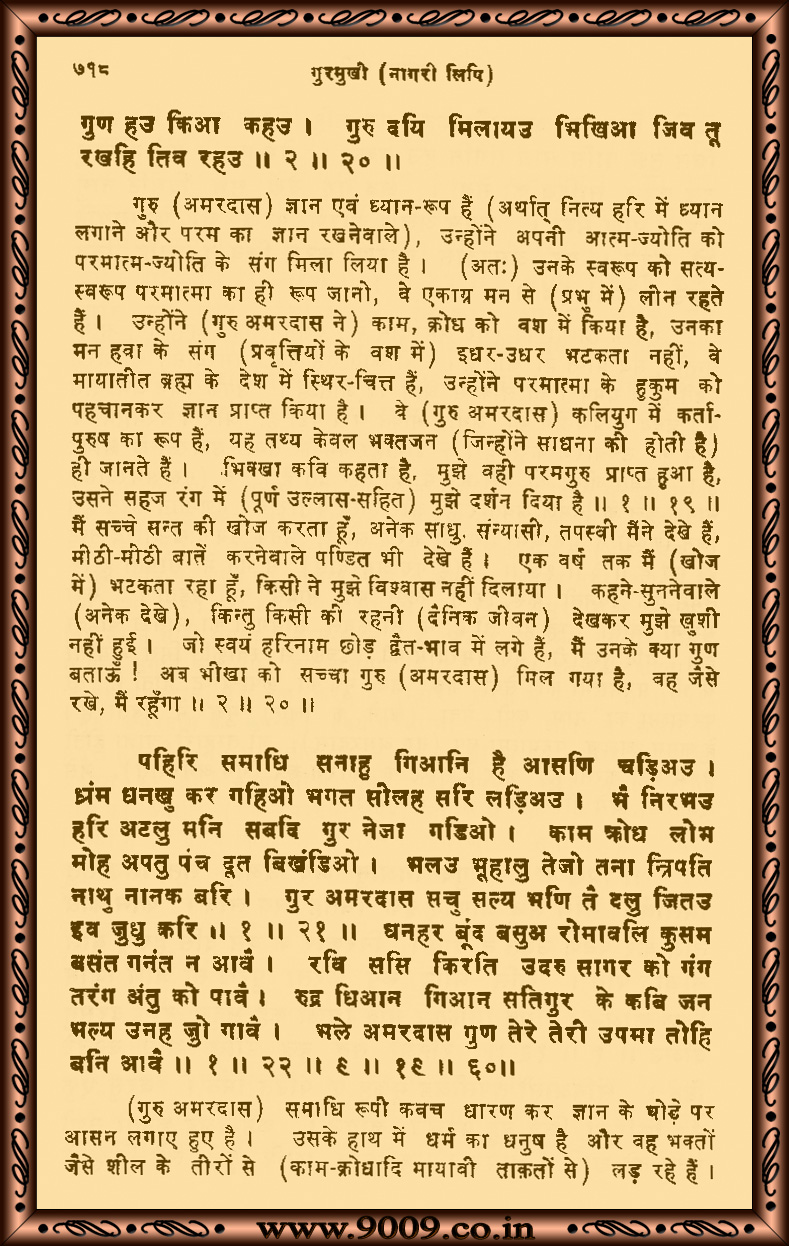 ७१८ गुरमुखी (नागरी लिपि)
गुण हउ किआ कहउ । गुरु दयि मिलायउ भिखिआ जिव तू
रखहि तिव रहउ ॥ २ ॥ २० ॥
गुरु (अमरदास) ज्ञान एवं ध्यान-रूप हैं (अर्थात् नित्य हरि में ध्यान
लगाने और परम का ज्ञान रखनेवाले), उन्होंने अपनी आत्म-ज्योति को
परमात्म-ज्योति के संग मिला लिया है । (अतः) उनके स्वरूप को सत्य-
स्वरूप परमात्मा का ही रूप जानो, वे एकाग्र मन से (प्रभु में) लीन रहते
हैं । उन्होंने (गुरु अमरदास ने) काम, क्रोध को वश में किया है, उनका
मन हवा के संग (प्रवृत्तियों के वश में) इधर-उधर भटकता नहीं, वे
मायातीत ब्रह्म के देश में स्थिर-चित्त हैं, उन्होंने परमात्मा के हुकुम को
पहचानकर ज्ञान प्राप्त किया है । वे (गुरु अमरदास) कलियुग में कर्ता-
पुरुष का रूप हैं, यह तथ्य केवल भक्तजन (जिन्होंने साधना की होती है)
ही जानते हैं । भिक्खा कवि कहता है, मुझे वही परमगुरु प्राप्त हुआ है,
उसने सहज रंग में (पूर्ण उल्लास-सहित) मुझे दर्शन दिया है ॥ १ ॥ १९ ॥
मैं सच्चे सन्त की खोज करता हूँ, अनेक साधु, संन्यासी, तपस्वी मैंने देखे हैं,
मीठी-मीठी बातें करनेवाले पण्डित भी देखे हैं । एक वर्ष तक मैं (खोज
में) भटकता रहा हूँ, किसी ने मुझे विश्वास नहीं दिलाया । कहने-सुननेवाले
(अनेक देखे), किन्तु किसी की रहनी (दैनिक जीवन) देखकर मुझे खुशी
नहीं हुई । जो स्वयं हरिनाम छोड़ द्वैत-भाव में लगे हैं, मैं उनके क्या गुण
बताऊँ ! अब भीखा को सच्चा गुरु (अमरदास) मिल गया है, वह जैसे
रखे, मैं रहूँगा ॥ २ ॥ २० ॥
पहिरि समाधि सनाहु गिआनि है आसणि चड़िअउ ।
ध्रंम धनखु कर गहिओ भगत सीलह सरि लड़िअउ । भै निरभउ
हरि अटलु मनि सबदि गुर नेजा गडिओ । काम क्रोध लोभ
मोह अपतु पंच दूत बिखंडिओ । भलउ भूहालु तेजो तना न्रिपति
नाथु नानक बरि । गुर अमरदास सचु सल्य भणि तै दलु जितउ
इव जुधु करि ॥ १ ॥ २१ ॥ घनहर बूंद बसुअ रोमावलि कुसम
बसंत गनंत न आवै । रवि ससि किरति उदरु सागर को गंग
तरंग अंतु को पावै । रुद्र धिआन गिआन सतिगुर के कबि जन
भल्य उनह जुो गावै । भले अमरदास गुण तेरे तेरी उपमा तोहि
बनि आवै ॥ १ ॥ २२ ॥ ९ ॥ १९ ॥ ६०॥
(गुरु अमरदास) समाधि रूपी कवच धारण कर ज्ञान के घोड़े पर
आसन लगाए हुए है । उसके हाथ में धर्म का धनुष है और वह भक्तों
जैसे शील के तीरों से (काम-क्रोधादि मायावी ताक़तों से) लड़ रहे हैं ।
www.9009.co.in